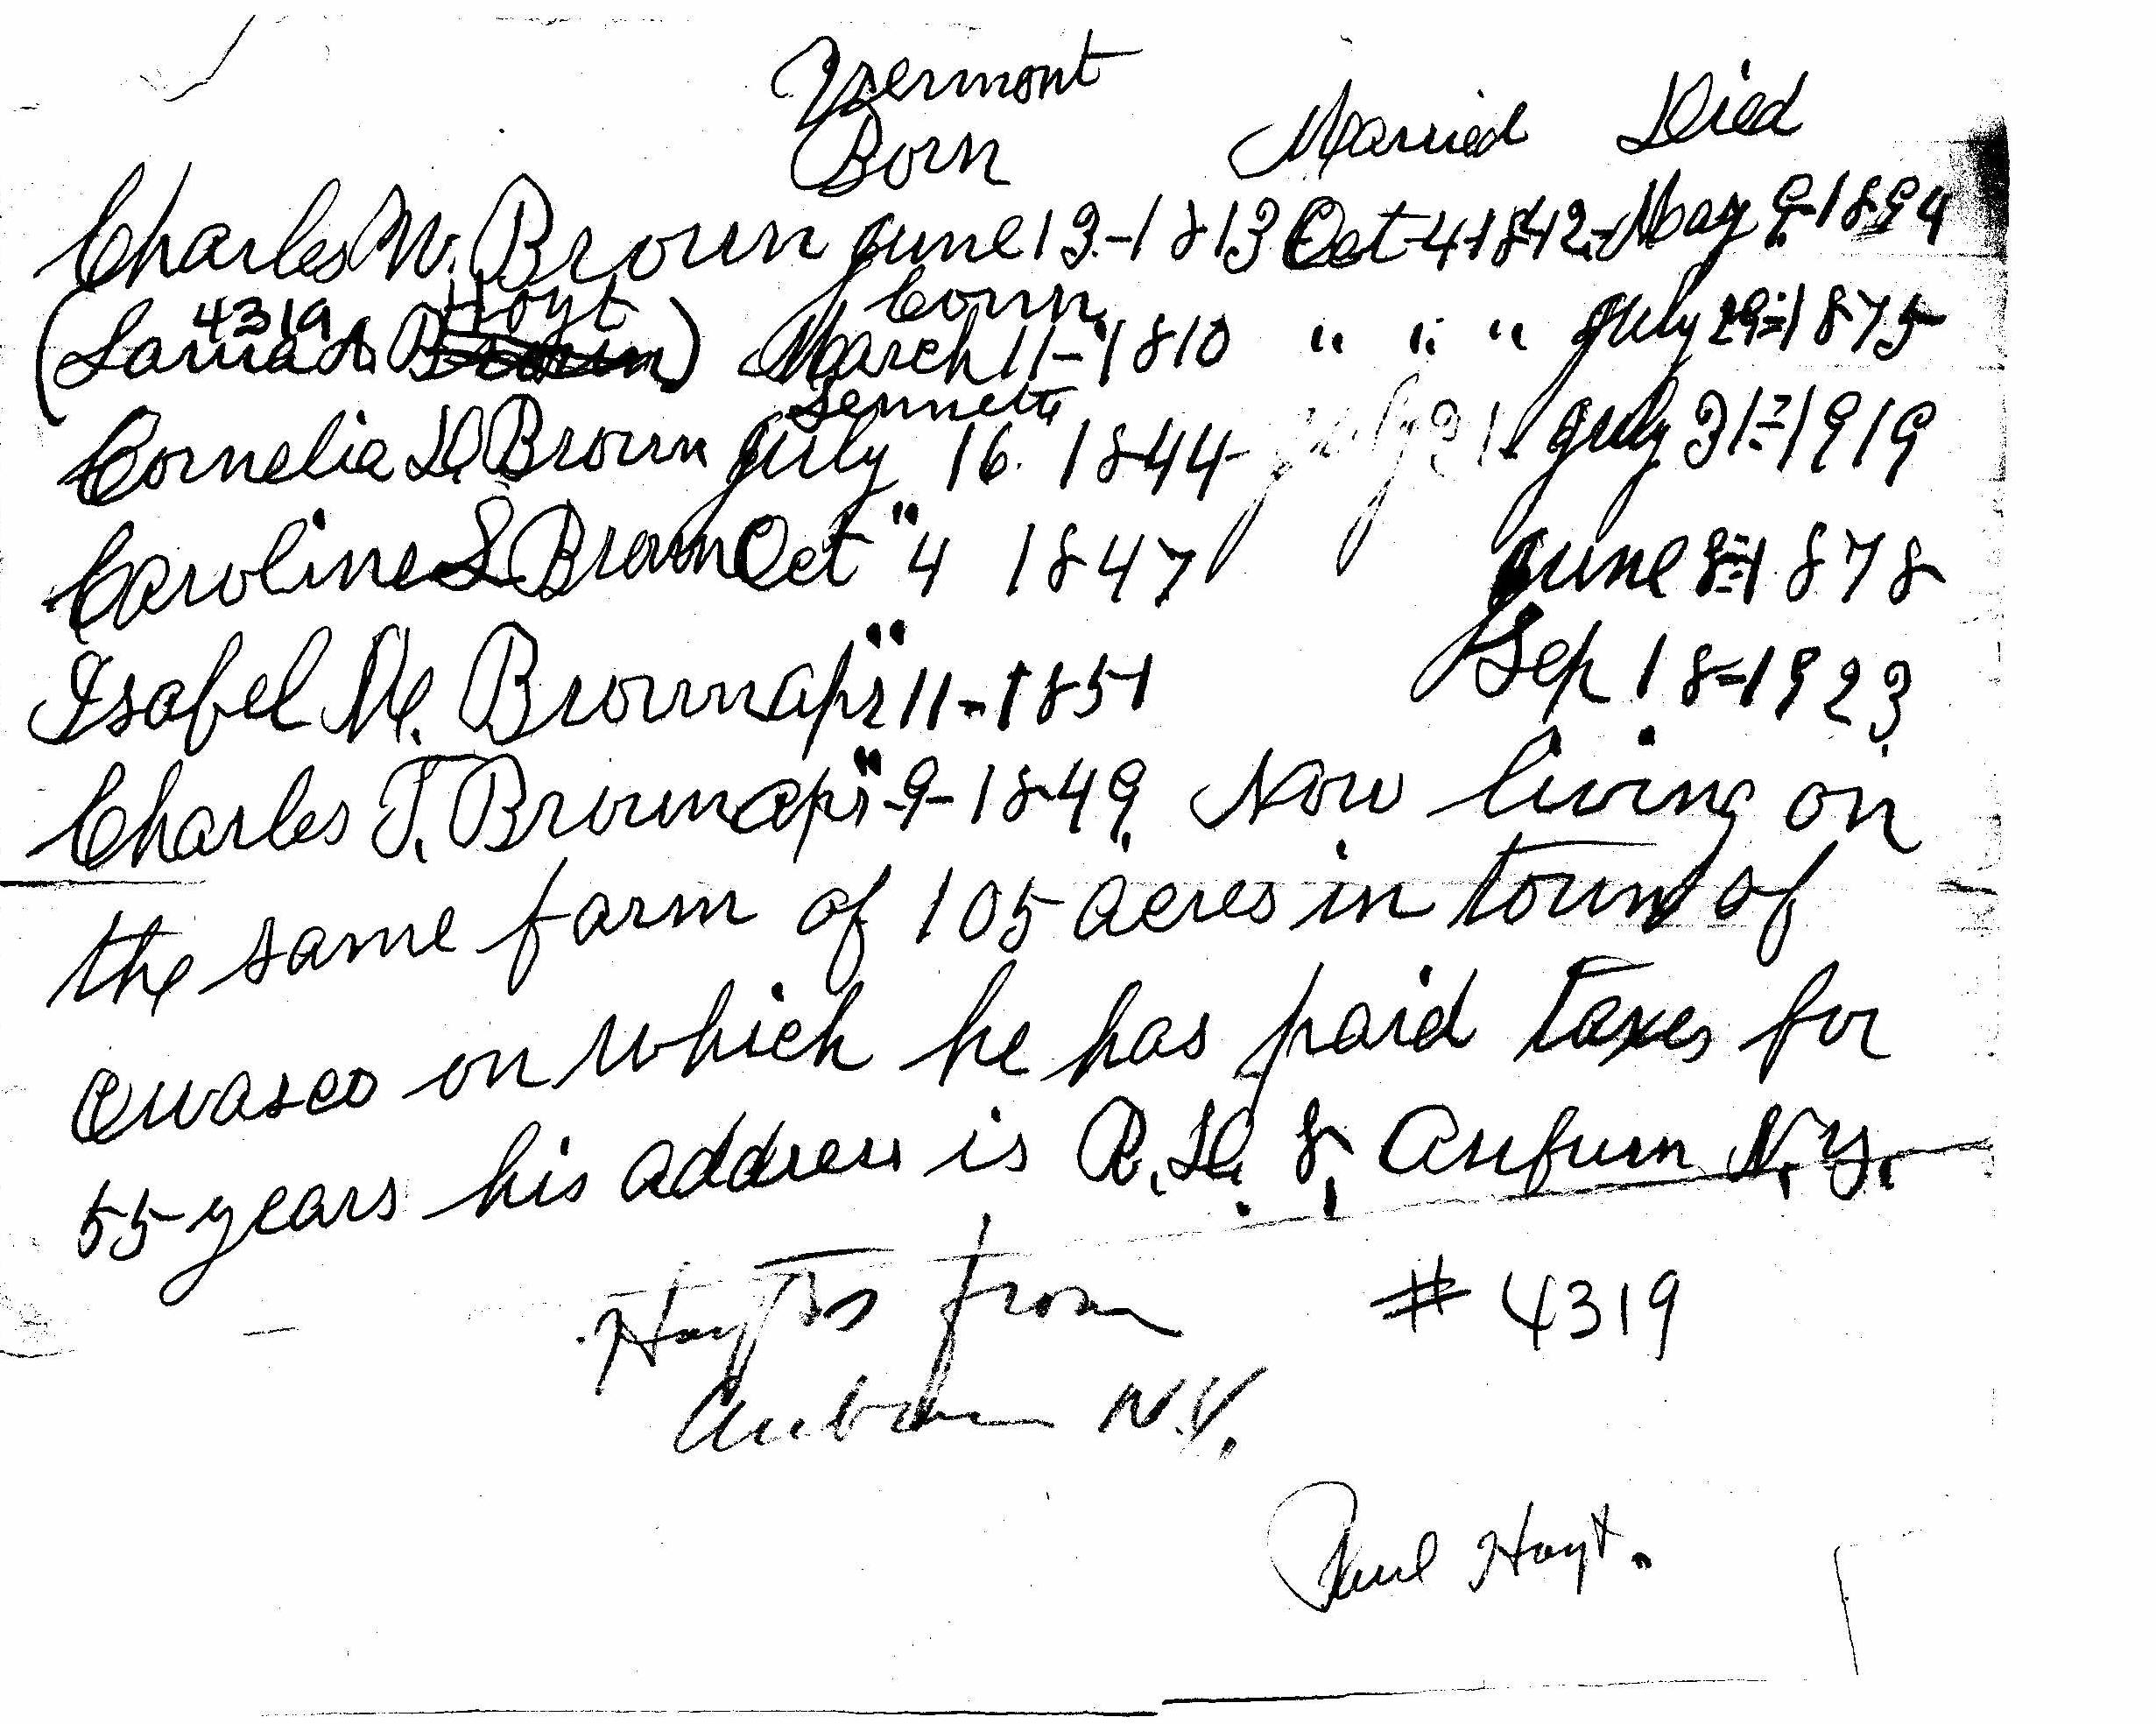 Vermont
Born Married Died
Charles W. Brown June 13-1813 Oct-4-1842-May 9-1894
4319 Hoyt Conn.
(Laura A. Brown) March 11-1810 " " " July 29-1875
Sennett
Cornelia D. Brown July 16. 1844 July 31 July 31-1919
"
Caroline S Brown Oct 4 1847 June 8-1878
"
Isabel M. Brown apr 11-1851 Sep 18-1923
"
Charles T. Brown apr-9-1849. Now living on
the same farm of 105 acres in town of
Owasco on which he has paid taxes for
55 years his address is R.D. 8, Auburn N.Y.
Hoyts from # 4319
Auburn N.Y.
Paul Hoyt.